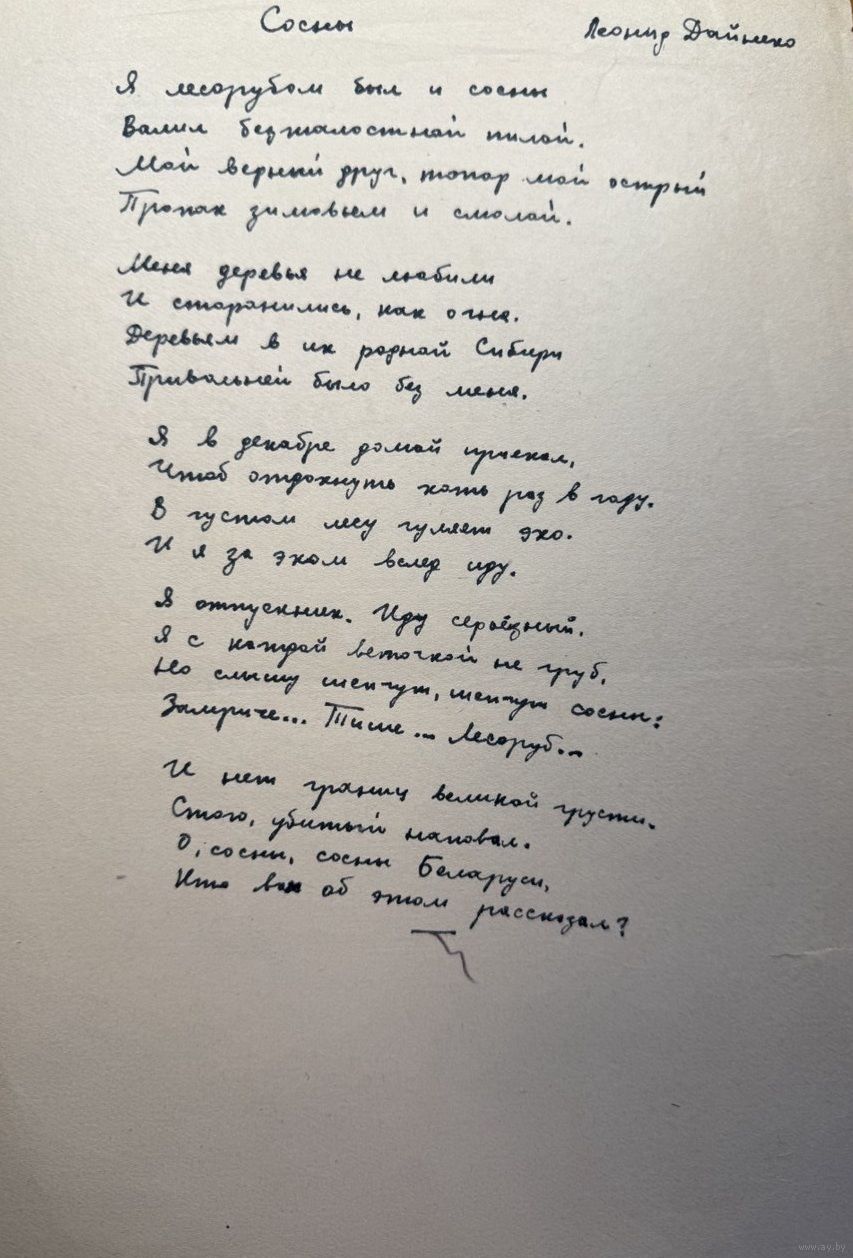 Сосны
Леонид Дайнеко
Я лесорубом был и сосны
Валил безжалостной пилой.
Мой верный друг, топор мой острый
Пропах зимовьем и смолой.
Меня деревья не любили
И сторонились, как огня.
Деревьям в их родной Сибири
Привольней было без меня.
Я в декабре домой приехал,
Чтоб отдохнуть хоть раз в году.
В густом лесу гуляет эхо.
И я за эхом вслед иду.
Я отпускник. Иду серьёзный.
Я с каждой веточкой не груб,
Но слышу шепчут, шепчут сосны:
Замрите... Тише... Лесоруб...
И нет границ великой грусти.
Стою, убитый наповал.
О, сосны, сосны Беларуси,
Кто вам об этом рассказал?
www.ay.by